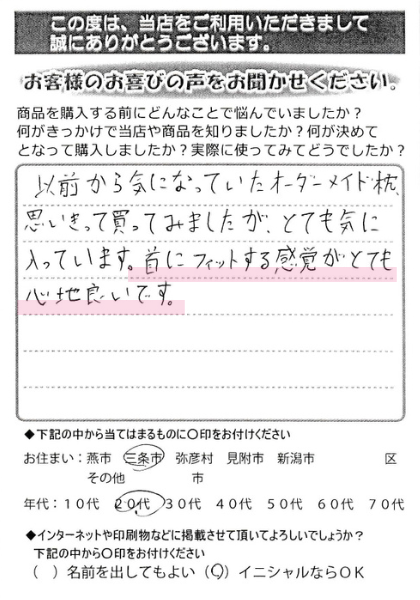 この度は、当店をご利用いただきまして
誠にありがとうございます。
お客様のお喜びの声をお聞かせください。
商品を購入する前にどんなことで悩んでいましたか?
何がきっかけで当店や商品を知りましたか?何が決めて
となって購入しましたか?実際に使ってみてどうでしたか?
以前から気になっていたオーダーメイド枕、
思いきって買ってみましたが、とても気に
入っています。首にフィットする感覚がとても
心地良いです。
◆下記の中から当てはまるものに〇印をお付けください
お住まい:燕市 三条市 弥彦村 見附市 新潟市 区
その他 市
年代:10代 20代 30代 40代 50代 60代 70代
◆インターネットや印刷物などに掲載させて頂いてよろしいでしょうか?
下記の中から〇印をお付けください
( )名前を出してもよい (〇)イニシャルならOK